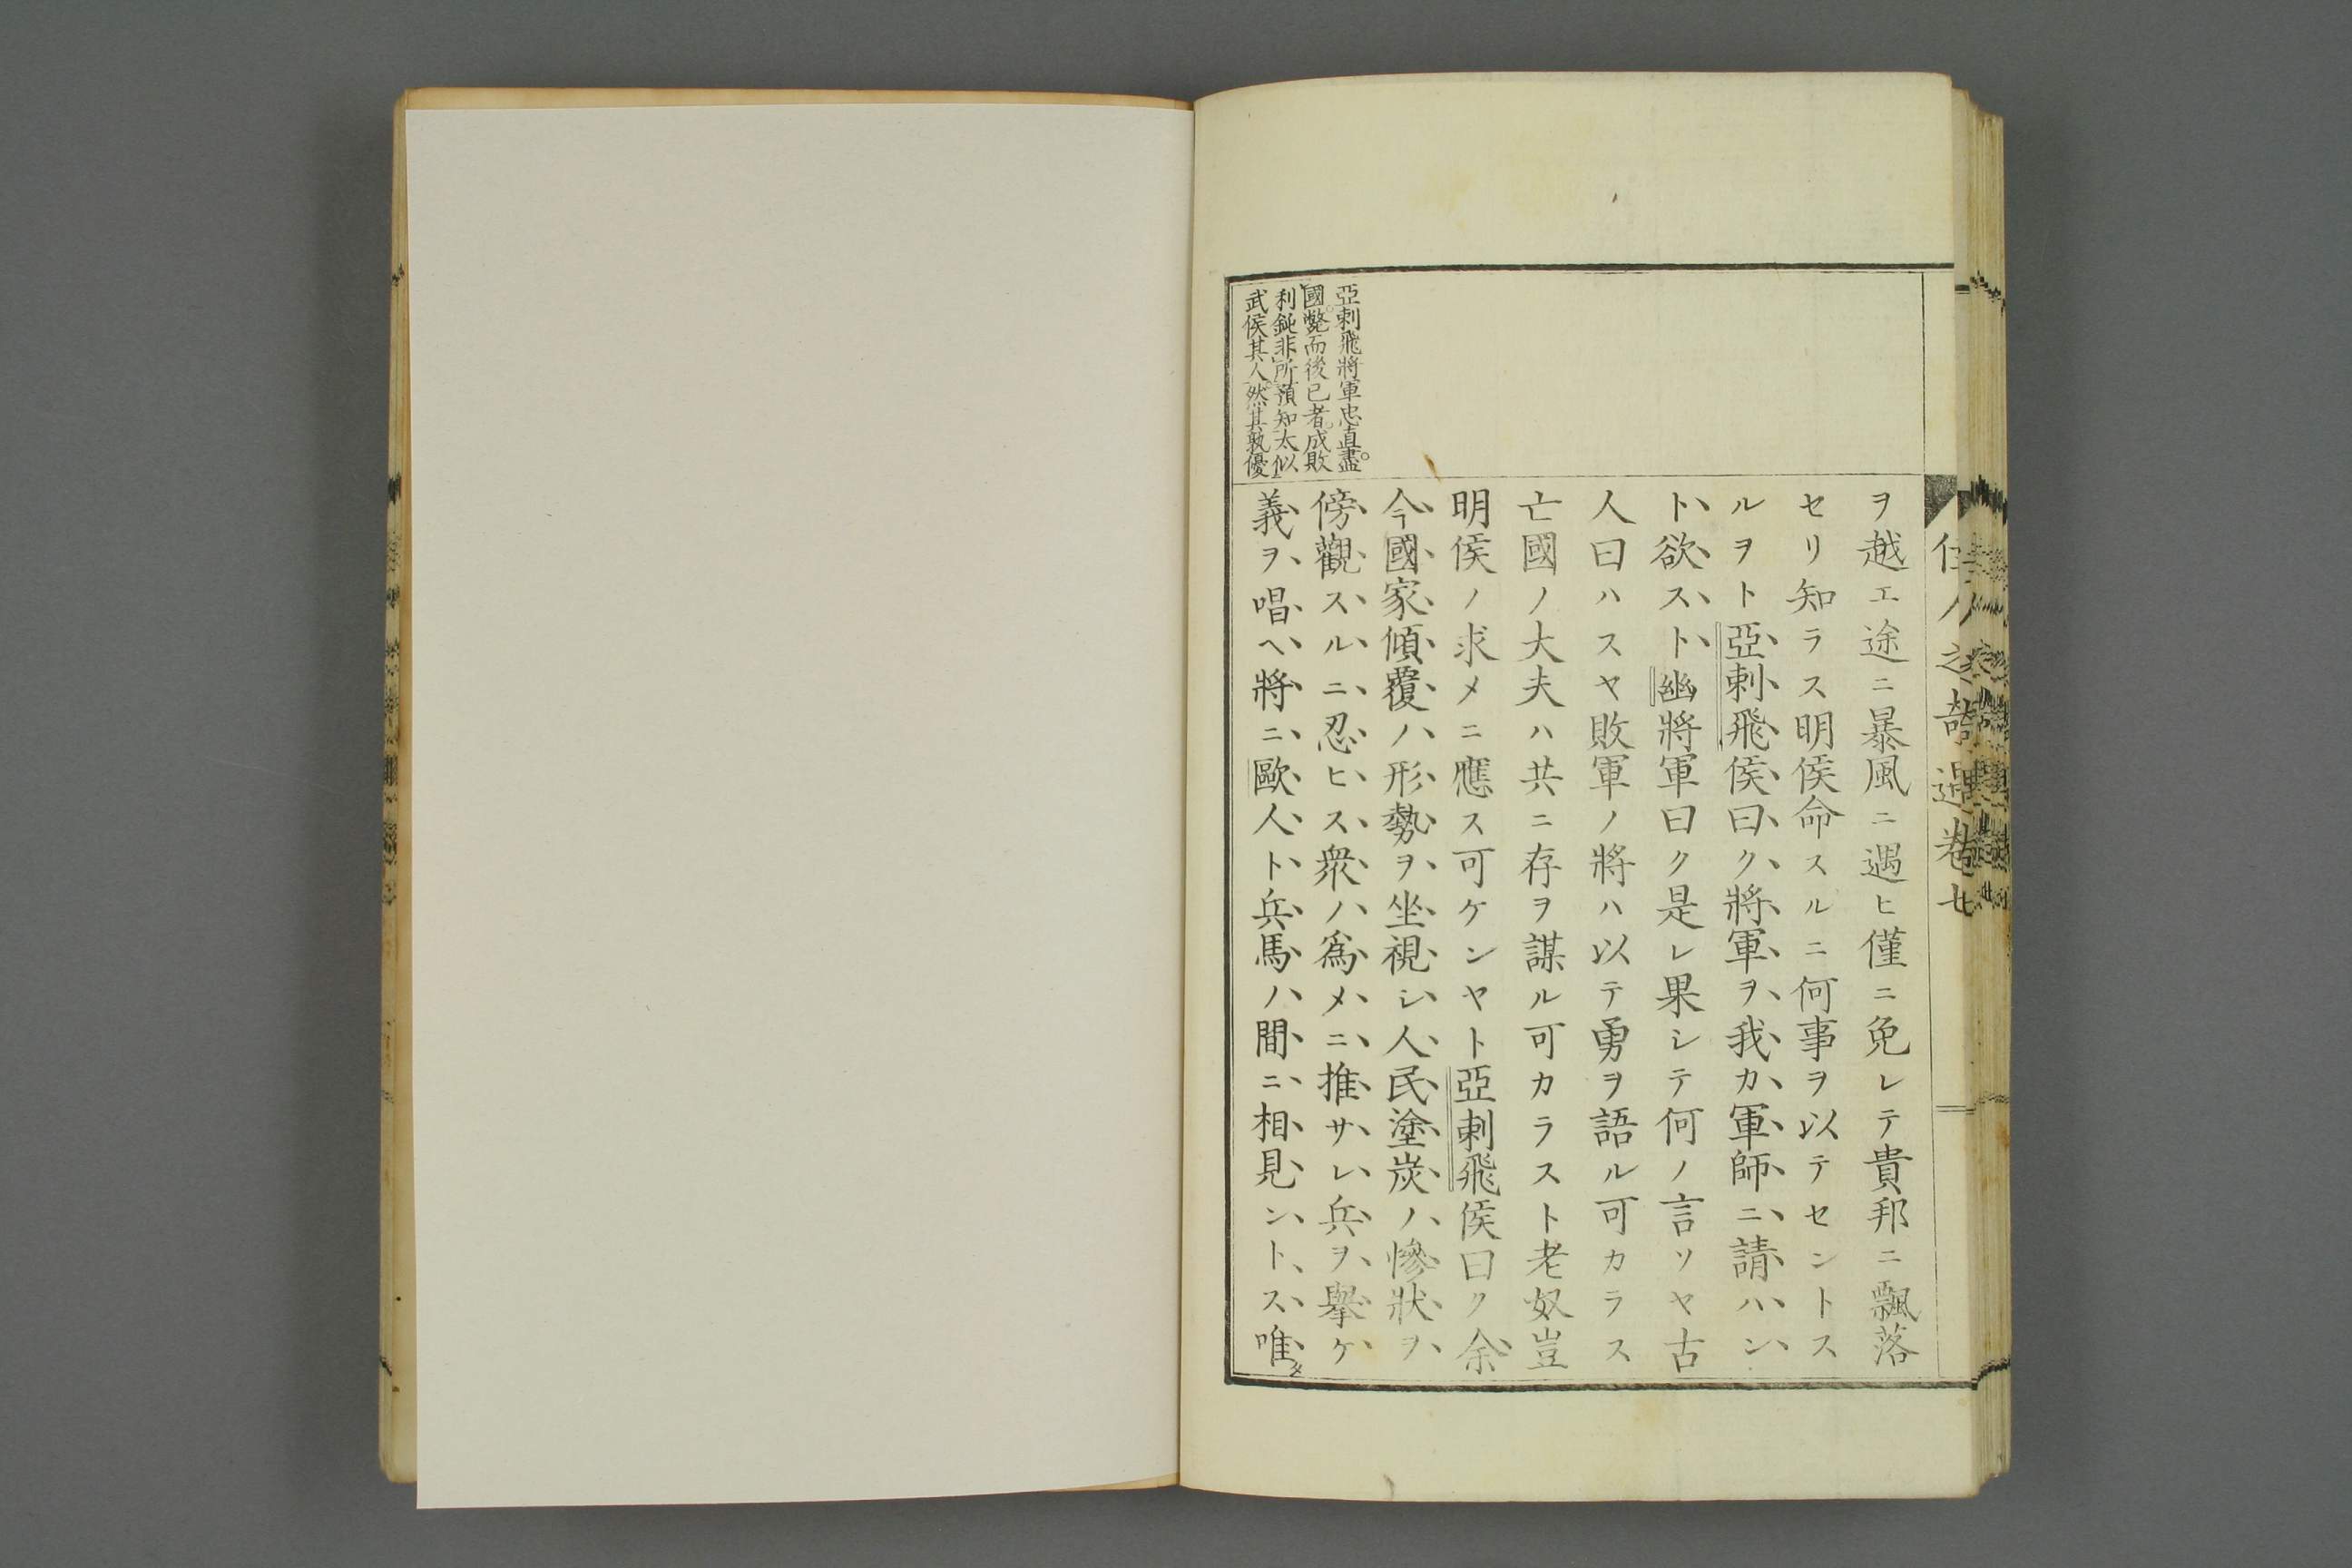 佳人之奇遇卷七
ヲ越エ途ニ暴風ニ遇ヒ僅ニ免レテ貴邦ニ飄落
セリ知ラス明侯命スルニ何事ヲ以テセントス
ルヲト亞剌飛侯曰ク將軍ヲ我カ軍師ニ請ハン
ト欲スト幽將軍曰ク是レ果シテ何ノ言ソヤ古
人曰ハスヤ敗軍ノ將ハ以テ勇ヲ語ル可カラス
亡國ノ大夫ハ共ニ存ヲ謀ル可カラスト老奴豈
明侯ノ求メニ應ス可ケンヤト亞剌飛侯曰ク余
今國家傾覆ノ形勢ヲ坐視シ人民塗炭ノ慘狀ヲ
傍觀スルニ忍ヒス衆ノ爲メニ推サレ兵ヲ擧ケ
義ヲ唱ヘ將ニ歐人ト兵馬ノ間ニ相見ントス唯タ
亞剌飛將軍忠直盡
國。斃而後已者。成敗
利鈍非所預知太似
武侯其人。然其孰優